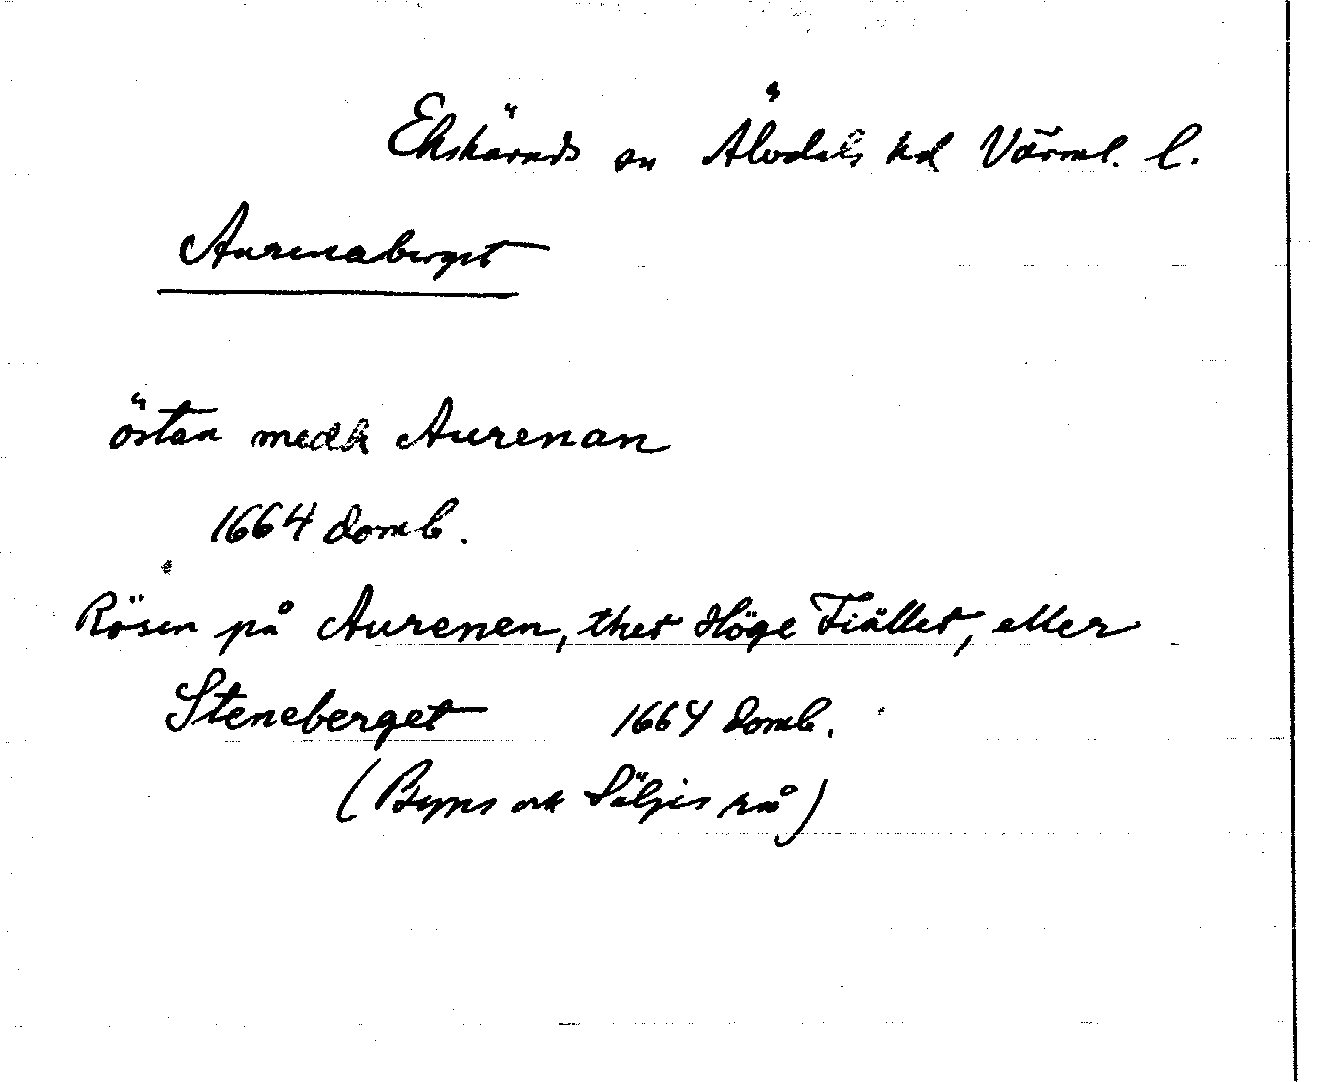 Ekshärads sn Älvdals hd Värml. l.
Aurenaberget
östan medh Aurenan
1664 domb.
Rösen på Aurenen, thet Höge Fiället, eller
Steneberget 1664 domb.
(Byns ock Säljes rå)